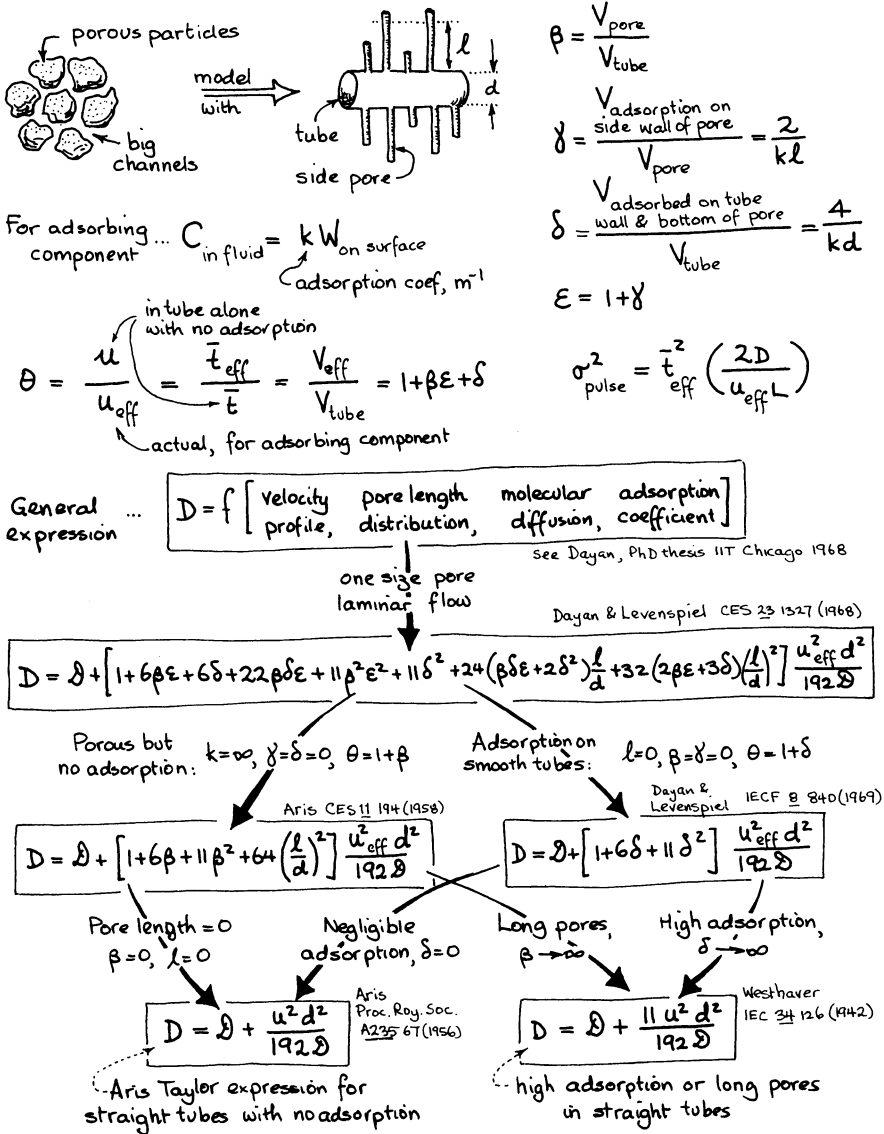 porous particles
big
channels
model
with
l
d
tube
side pore
β = V pore / V tube
γ = V adsorption on side wall of pore / V pore = 2 / kl
δ = V adsorbed on tube wall & bottom of pore / V tube = 4 / kd
ε = 1+γ
For adsorbing
component ... C in fluid = k W on surface
adsorption coef, m⁻¹
in tube alone
with no adsorption
θ = u / u eff = t̄ eff / t̄ = V eff / V tube = 1+βε+δ
actual, for adsorbing component
σ² pulse = t̄² eff (2D / u eff L)
General
expression ...
D = f [velocity profile, pore length distribution, molecular diffusion, adsorption coefficient]
see Dayan, PhD thesis IIT Chicago 1968
one size pore
laminar flow
Dayan & Levenspiel CES 23 1327 (1968)
D = 𝒟 + [1+6βε+6δ+22βδε+11β²ε²+11δ²+24(βδε+2δ²) l/d +32(2βε+3δ)(l/d)²] u²eff d² / 192𝒟
Porous but
no adsorption: k=∞, γ=δ=0, θ=1+β
Adsorption on
smooth tubes: l=0, β=γ=0, θ=1+δ
Aris CES 11 194 (1958)
D = 𝒟 + [1+6β+11β²+64(l/d)²] u²eff d² / 192𝒟
Dayan &
Levenspiel IECF 8 840 (1969)
D = 𝒟 + [1+6δ+11δ²] u²eff d² / 192𝒟
Pore length = 0
β=0, l=0
Negligible
adsorption, δ=0
Long pores,
β→∞
High adsorption,
δ→∞
Aris
Proc. Roy. Soc.
A235 67 (1956)
D = 𝒟 + u² d² / 192𝒟
Westhaver
IEC 34 126 (1942)
D = 𝒟 + 11 u² d² / 192𝒟
Aris Taylor expression for
straight tubes with no adsorption
high adsorption or long pores
in straight tubes